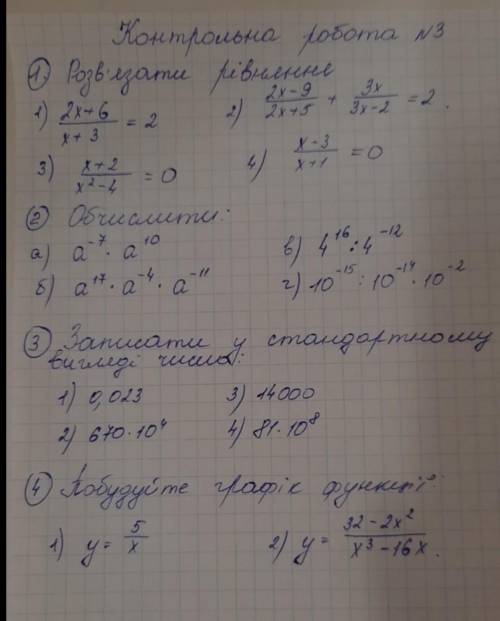 Контрольна робота №3
① Розв'язати рівняння
1) (2x+6)/(x+3) = 2 2) (2x-9)/(2x+5) + 3x/(3x-2) = 2.
3) (x+2)/(x²-4) = 0 4) (x-3)/(x+1) = 0
② Обчислити:
а) a⁻⁷ · a¹⁰ в) 4¹⁶ : 4⁻¹²
б) a¹⁷ · a⁻⁴ · a⁻¹¹ г) 10⁻¹⁵ : 10⁻¹⁴ · 10⁻²
③ Записати у стандартному
вигляді число:
1) 0,023 3) 14000
2) 670·10⁴ 4) 81·10⁸
④ Побудуйте графік функції:
1) y = 5/x 2) y = (32-2x²)/(x³-16x).